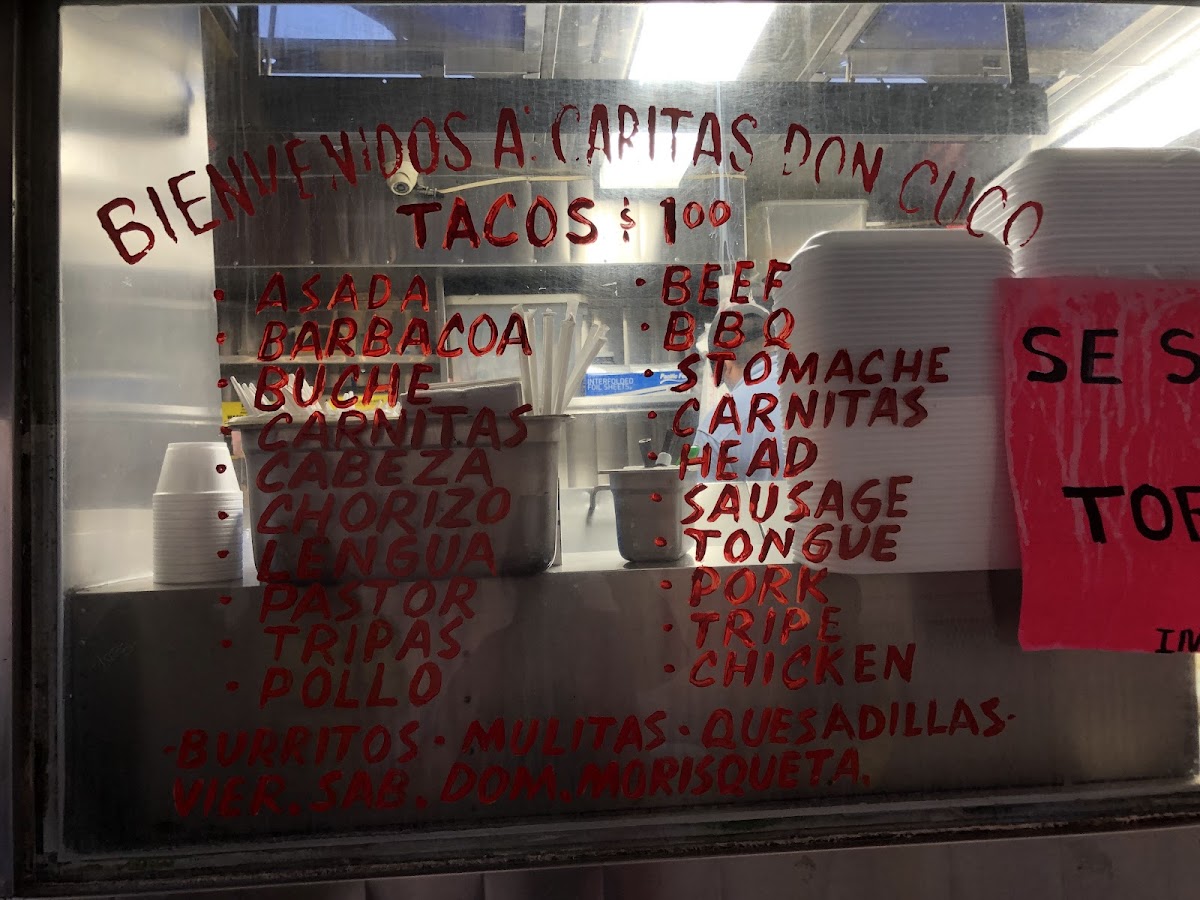 BIENVENIDOS A: CARITAS DON CUCO
TACOS $1.00
· ASADA
· BARBACOA
· BUCHE
· CARNITAS
· CABEZA
· CHORIZO
· LENGUA
· PASTOR
· TRIPAS
· POLLO
· BEEF
· BBQ
· STOMACHE
· CARNITAS
· HEAD
· SAUSAGE
· TONGUE
· PORK
· TRIPE
· CHICKEN
-BURRITOS · MULITAS · QUESADILLAS-
VIER. SAB. DOM. MORISQUETA.
INTERFOLDED
FOIL SHEETS
SE S
TOR
IN